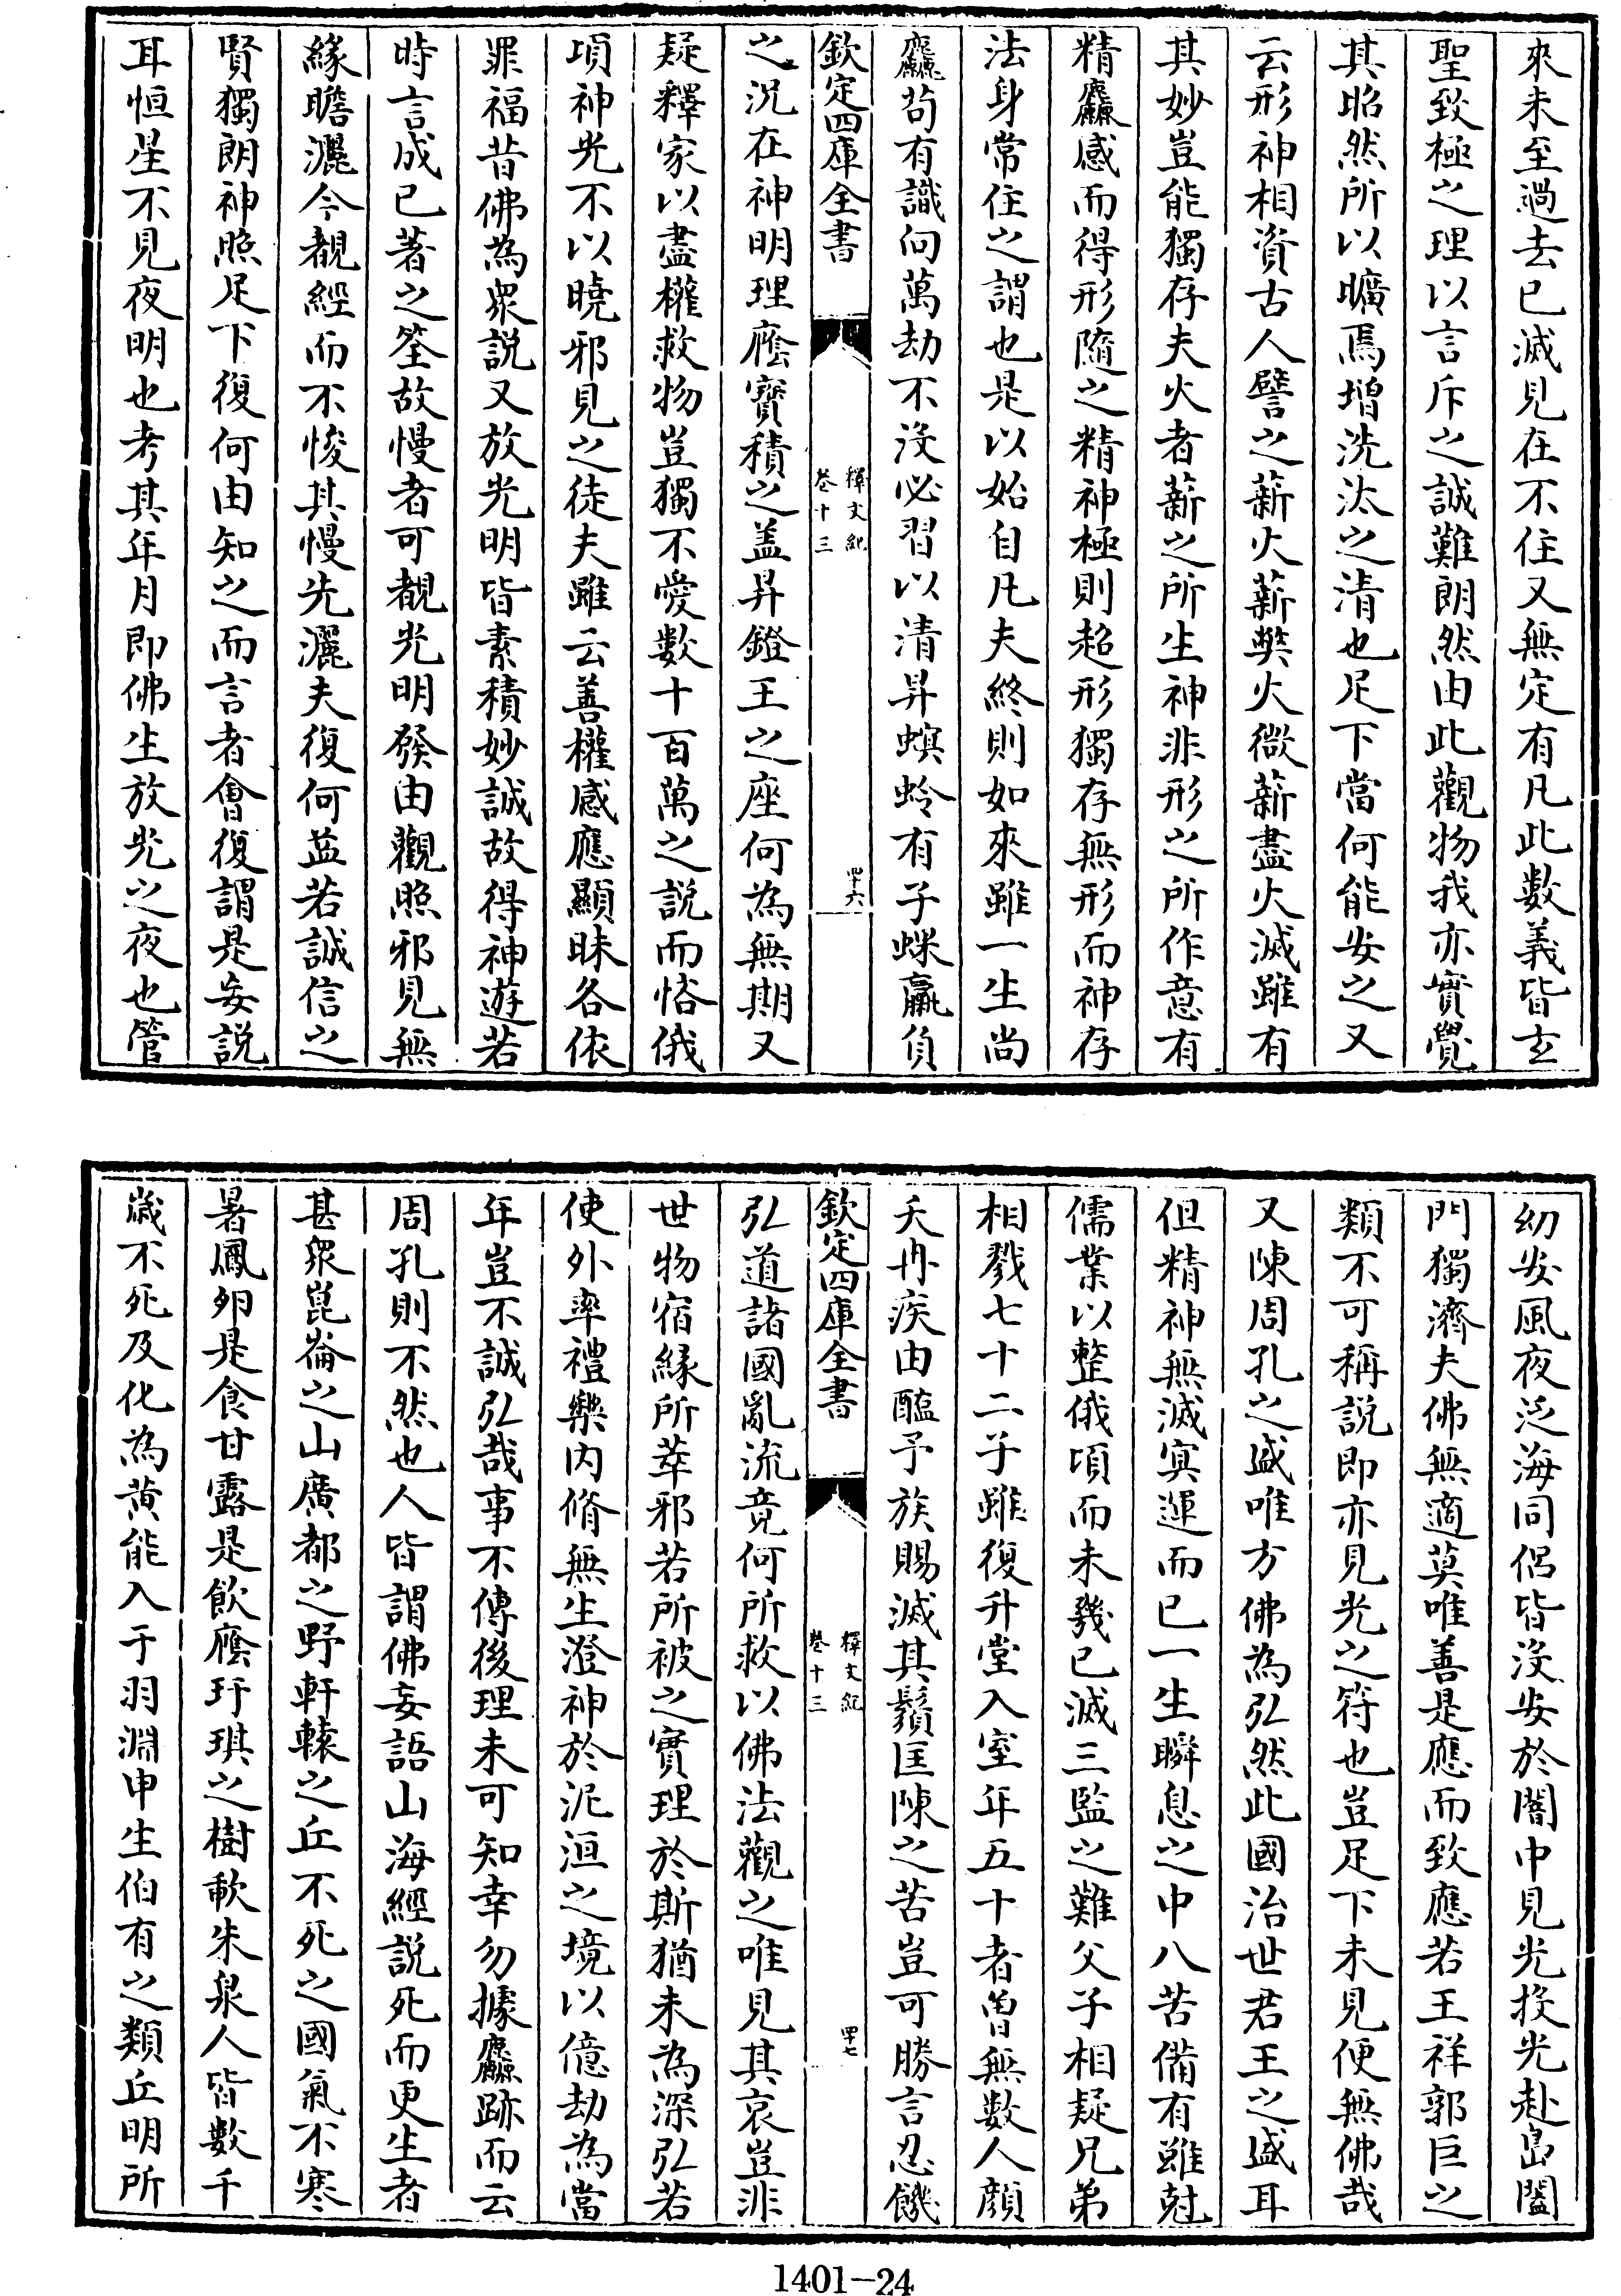 來未至過去已滅見在不住又無定有凡此數義皆玄
聖致極之理以言斥之誠難朗然由此觀物我亦實覺
其昭然所以曠焉增洗汰之清也足下當何能安之又
云形神相資古人譬之薪火薪弊火微薪盡火滅雖有
其妙豈能獨存夫火者薪之所生神非形之所作意有
精麤感而得形隨之精神極則超形獨存無形而神存
法身常住之謂也是以始自凡夫終則如來雖一生尚
麤茍有識向萬劫不沒必習以清昇螟蛉有子蜾蠃負
欽定四庫全書
釋文紀
卷十三
四十六
之況在神明理廕寶積之盖昇鐙王之座何為無期又
疑釋家以盡權救物豈獨不愛數十百萬之說而悋俄
項神光不以曉邪見之徒夫雖云善權感應顯昧各依
罪福昔佛為衆說又放光明皆素積妙誠故得神遊若
時言成已著之筌故慢者可覩光明發由觀照邪見無
緣瞻灑今覩經而不悛其慢先灑夫復何益若誠信之
賢獨朗神照足下復何由知之而言者會復謂是妄說
耳恒星不見夜明也考其年月即佛生放光之夜也管
幼安風夜泛海同侶皆沒安於闇中見光投光赴島闔
門獨濟夫佛無適莫唯善是應而致應若王祥郭巨之
類不可稱說即亦見光之符也豈足下未見便無佛哉
又陳周孔之盛唯方佛為弘然此國治世君王之盛耳
但精神無滅㝠運而已一生瞬息之中八苦備有雖尅
儒業以整俄頃而未幾已滅三監之難父子相疑兄弟
相戮七十二子雖復升堂入室年五十者曽無數人顔
夭冉疾由醢予族賜滅其鬚匡陳之苦豈可勝言忍饑
欽定四庫全書
釋文紀
卷十三
四十七
弘道諸國亂流竟何所救以佛法觀之唯見其哀豈非
世物宿緣所萃邪若所被之實理於斯猶未為深弘若
使外率禮樂内脩無生澄神於泥洹之境以億劫為當
年豈不誠弘哉事不傳後理未可知幸勿據麤跡而云
周孔則不然也人皆謂佛妄語山海經說死而更生者
甚衆崑崙之山廣都之野軒轅之丘不死之國氣不寒
暑鳳卵是食甘露是飲廕玗琪之樹歃朱泉人皆數千
歲不死及化為黄能入于羽淵申生伯有之類丘明所
1401-24